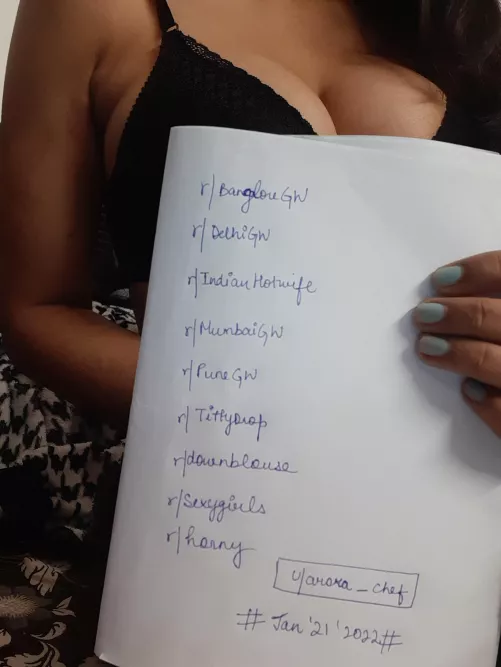 r/BangloreGW
r/DelhiGW
r/IndianHotwife
r/MumbaiGW
r/PuneGW
r/TittyDrop
r/downblouse
r/Sexygirls
r/horny
u/arora_chef
# Jan '21 '2022#